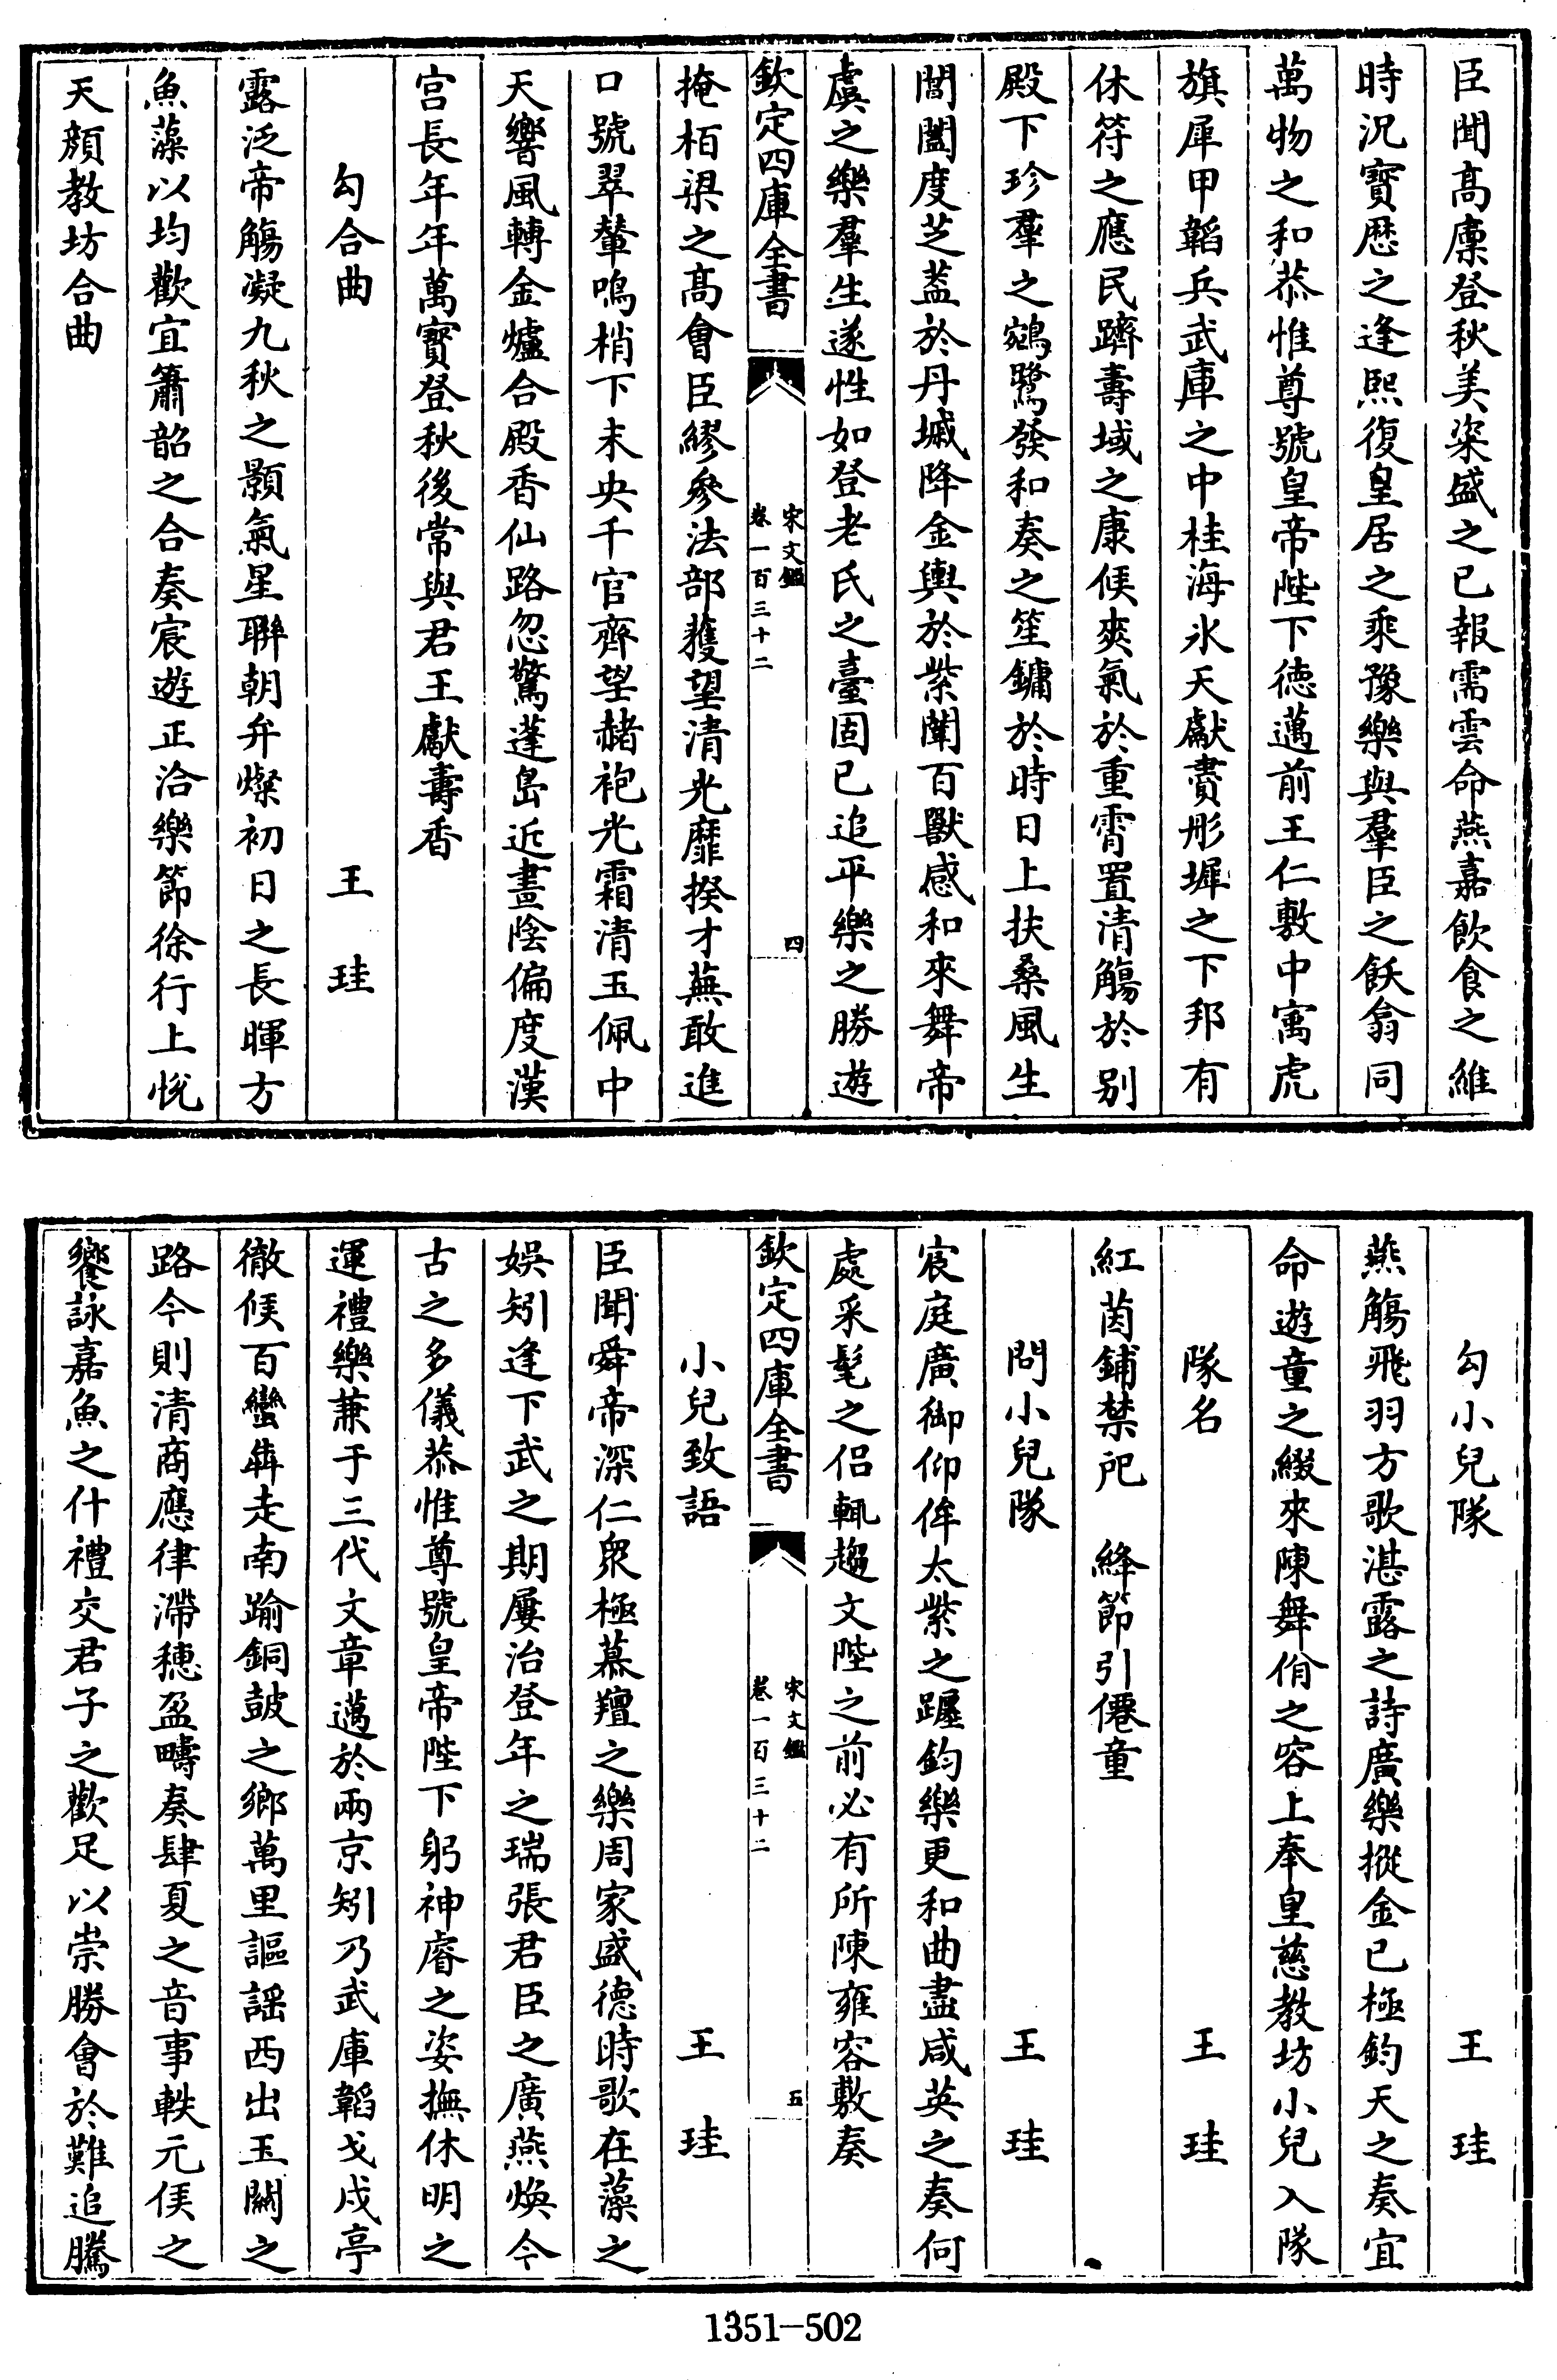 臣聞髙廪登秋美粢盛之已報需雲命燕嘉飲食之維
時況寳厯之逢熙復皇居之乘豫樂與羣臣之飫翕同
萬物之和恭惟尊號皇帝陛下徳邁前王仁敷中㝢虎
旗犀甲韜兵武庫之中桂海氷天獻賮彤墀之下邦有
休符之應民躋壽域之康候爽氣於重霄置清觴於别
殿下珍羣之鵷鷺發和奏之笙鏞於時日上扶桑風生
閶闔度芝葢於丹墄降金輿於紫闈百獸感和來舞帝
虞之樂羣生遂性如登老氏之臺固已追平樂之勝遊
欽定四庫全書
宋文鑑
卷一百三十二
四
掩栢梁之髙會臣繆參法部獲望清光靡揆才蕪敢進
口號翠輦鳴梢下未央千官齊望赭袍光霜清玉佩中
天響風轉金爐合殿香仙路忽驚蓬島近晝陰偏度漢
宫長年年萬寳登秋後常與君王獻壽香
勾合曲
王珪
露泛帝觴凝九秋之顥氣星聯朝弁燦初日之長暉方
魚藻以均歡宜簫韶之合奏宸遊正洽樂節徐行上悦
天顔教坊合曲
勾小兒隊
王珪
燕觴飛羽方歌湛露之詩廣樂摐金已極鈞天之奏宜
命遊童之綴來陳舞佾之容上奉皇慈教坊小兒入隊
隊名
王珪
紅茵鋪禁戺 絳節引僊童
問小兒隊
王珪
宸庭廣御仰侔太紫之躔鈞樂更和曲盡咸英之奏何
處采髦之侣輒趨文陛之前必有所陳雍容敷奏
欽定四庫全書
宋文鑑
卷一百三十二
五
小兒致語
王珪
臣聞舜帝深仁衆極慕羶之樂周家盛德時歌在藻之
娱矧逢下武之期屢治登年之瑞張君臣之廣燕煥今
古之多儀恭惟尊號皇帝陛下躬神睿之姿撫休明之
運禮樂兼于三代文章邁於兩京矧乃武庫韜戈戍亭
徹候百蠻犇走南踰銅鼓之鄉萬里謳謡西出玉關之
路今則清商應律滯穗盈疇奏肆夏之音事軼元侯之
饗詠嘉魚之什禮交君子之歡足以崇勝會於難追騰
1351-502